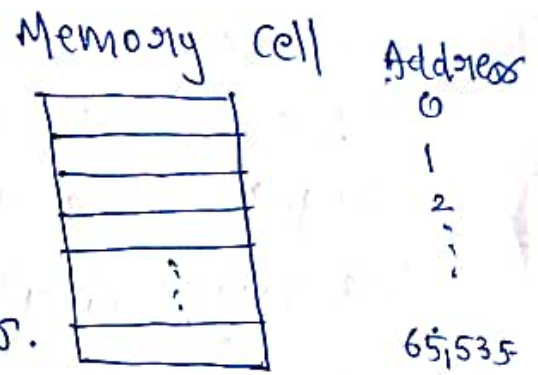 Memory Cell Address
0
1
2
65,535
s.